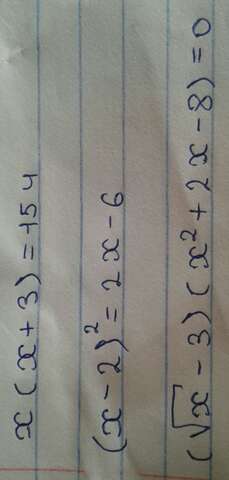 x(x+3)=154
(x-2)²=2x-6
(√x-3)(x²+2x-8)=0